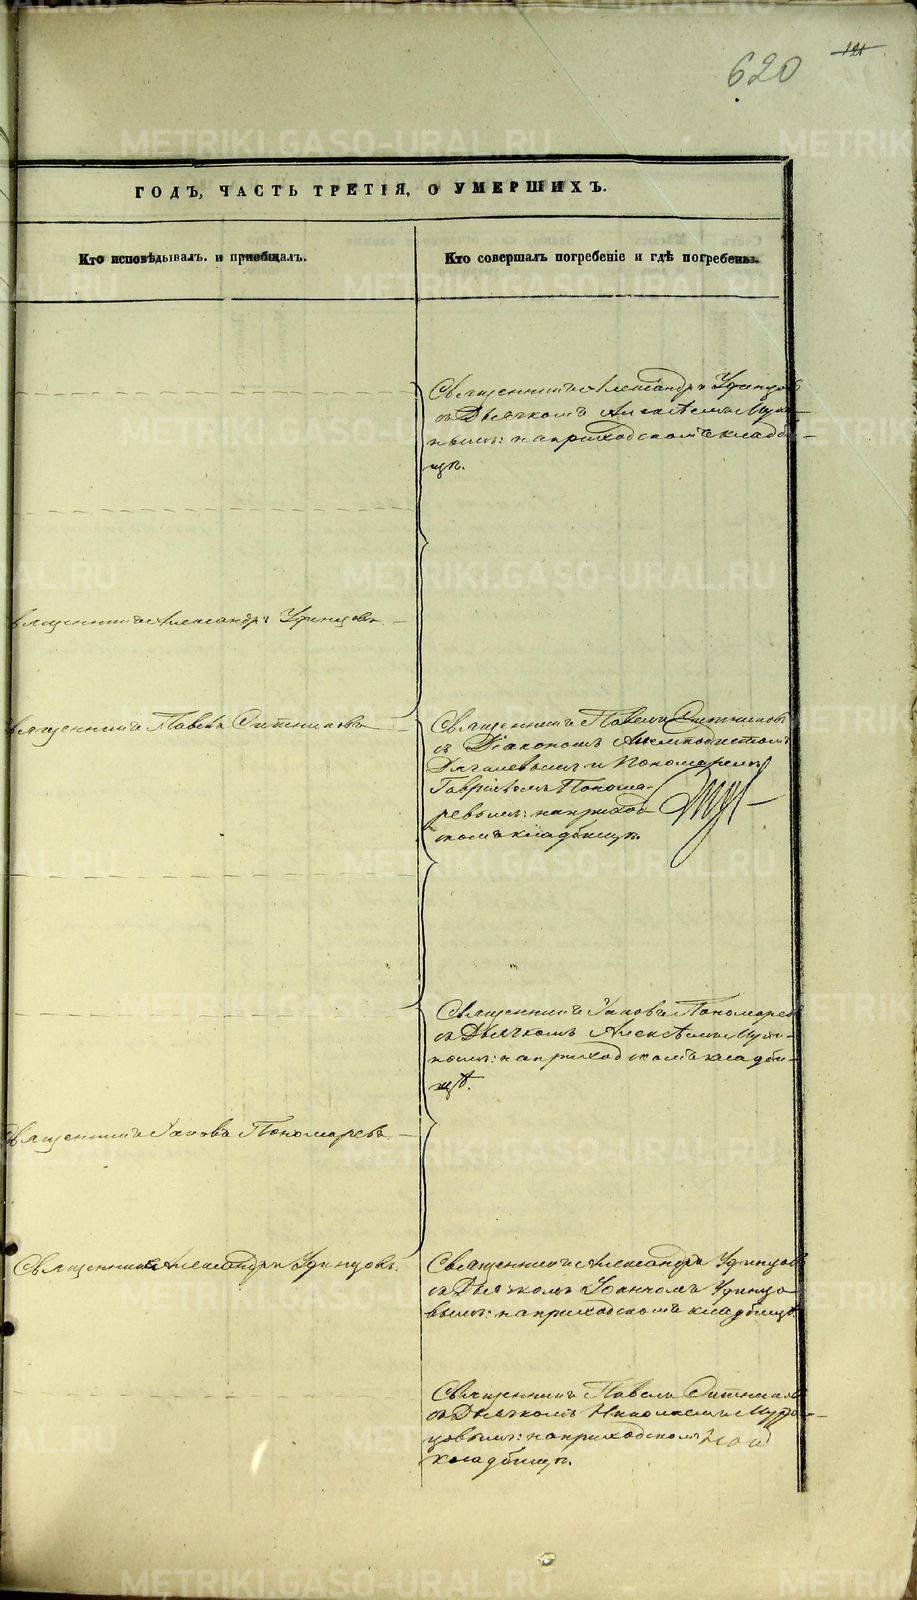 620
121
ГОДЪ, ЧАСТЬ ТРЕТІЯ, О УМЕРШИХЪ.
Кто исповѣдывалъ и пріобщалъ.
Кто совершалъ погребеніе и гдѣ погребены.
Священникъ Александръ Удинцовъ
съ Дьячкомъ Алексѣемъ
на приходскомъ кладби-
щѣ.
священникъ Александръ Удинцовъ
священникъ Павелъ Ситниковъ
Священникъ Павелъ Ситниковъ
съ Діакономъ
и Пономаремъ
Гавріиломъ Понома-
ревымъ: на приход
скомъ кладбищѣ.
Священникъ Іаковъ Пономаревъ
съ Дьячкомъ Алексѣемъ
на приходскомъ кладби-
щѣ.
священникъ Іаковъ Пономаревъ
Священникъ Александръ Удинцовъ.
Священникъ Александръ Удинцовъ
съ Дьячкомъ Удинцо
вымъ: на приходскомъ кладбищѣ.
Священникъ Павелъ Ситниковъ
съ Дьячкомъ Николаемъ
цовымъ: на приходскомъ
кладбищѣ.
METRIKI.GASO-URAL.RU